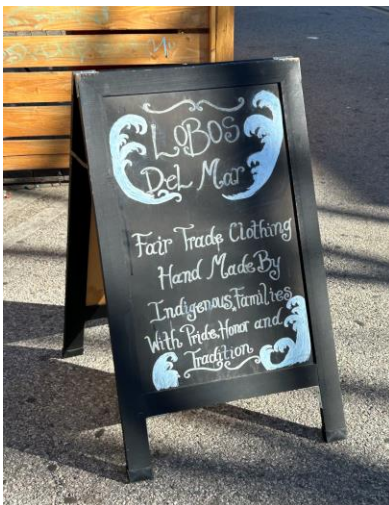 LoBOS
Del Mar
Fair Trade Clothing
Hand Made By
Indigenous Families
With Pride, Honor and
Tradition